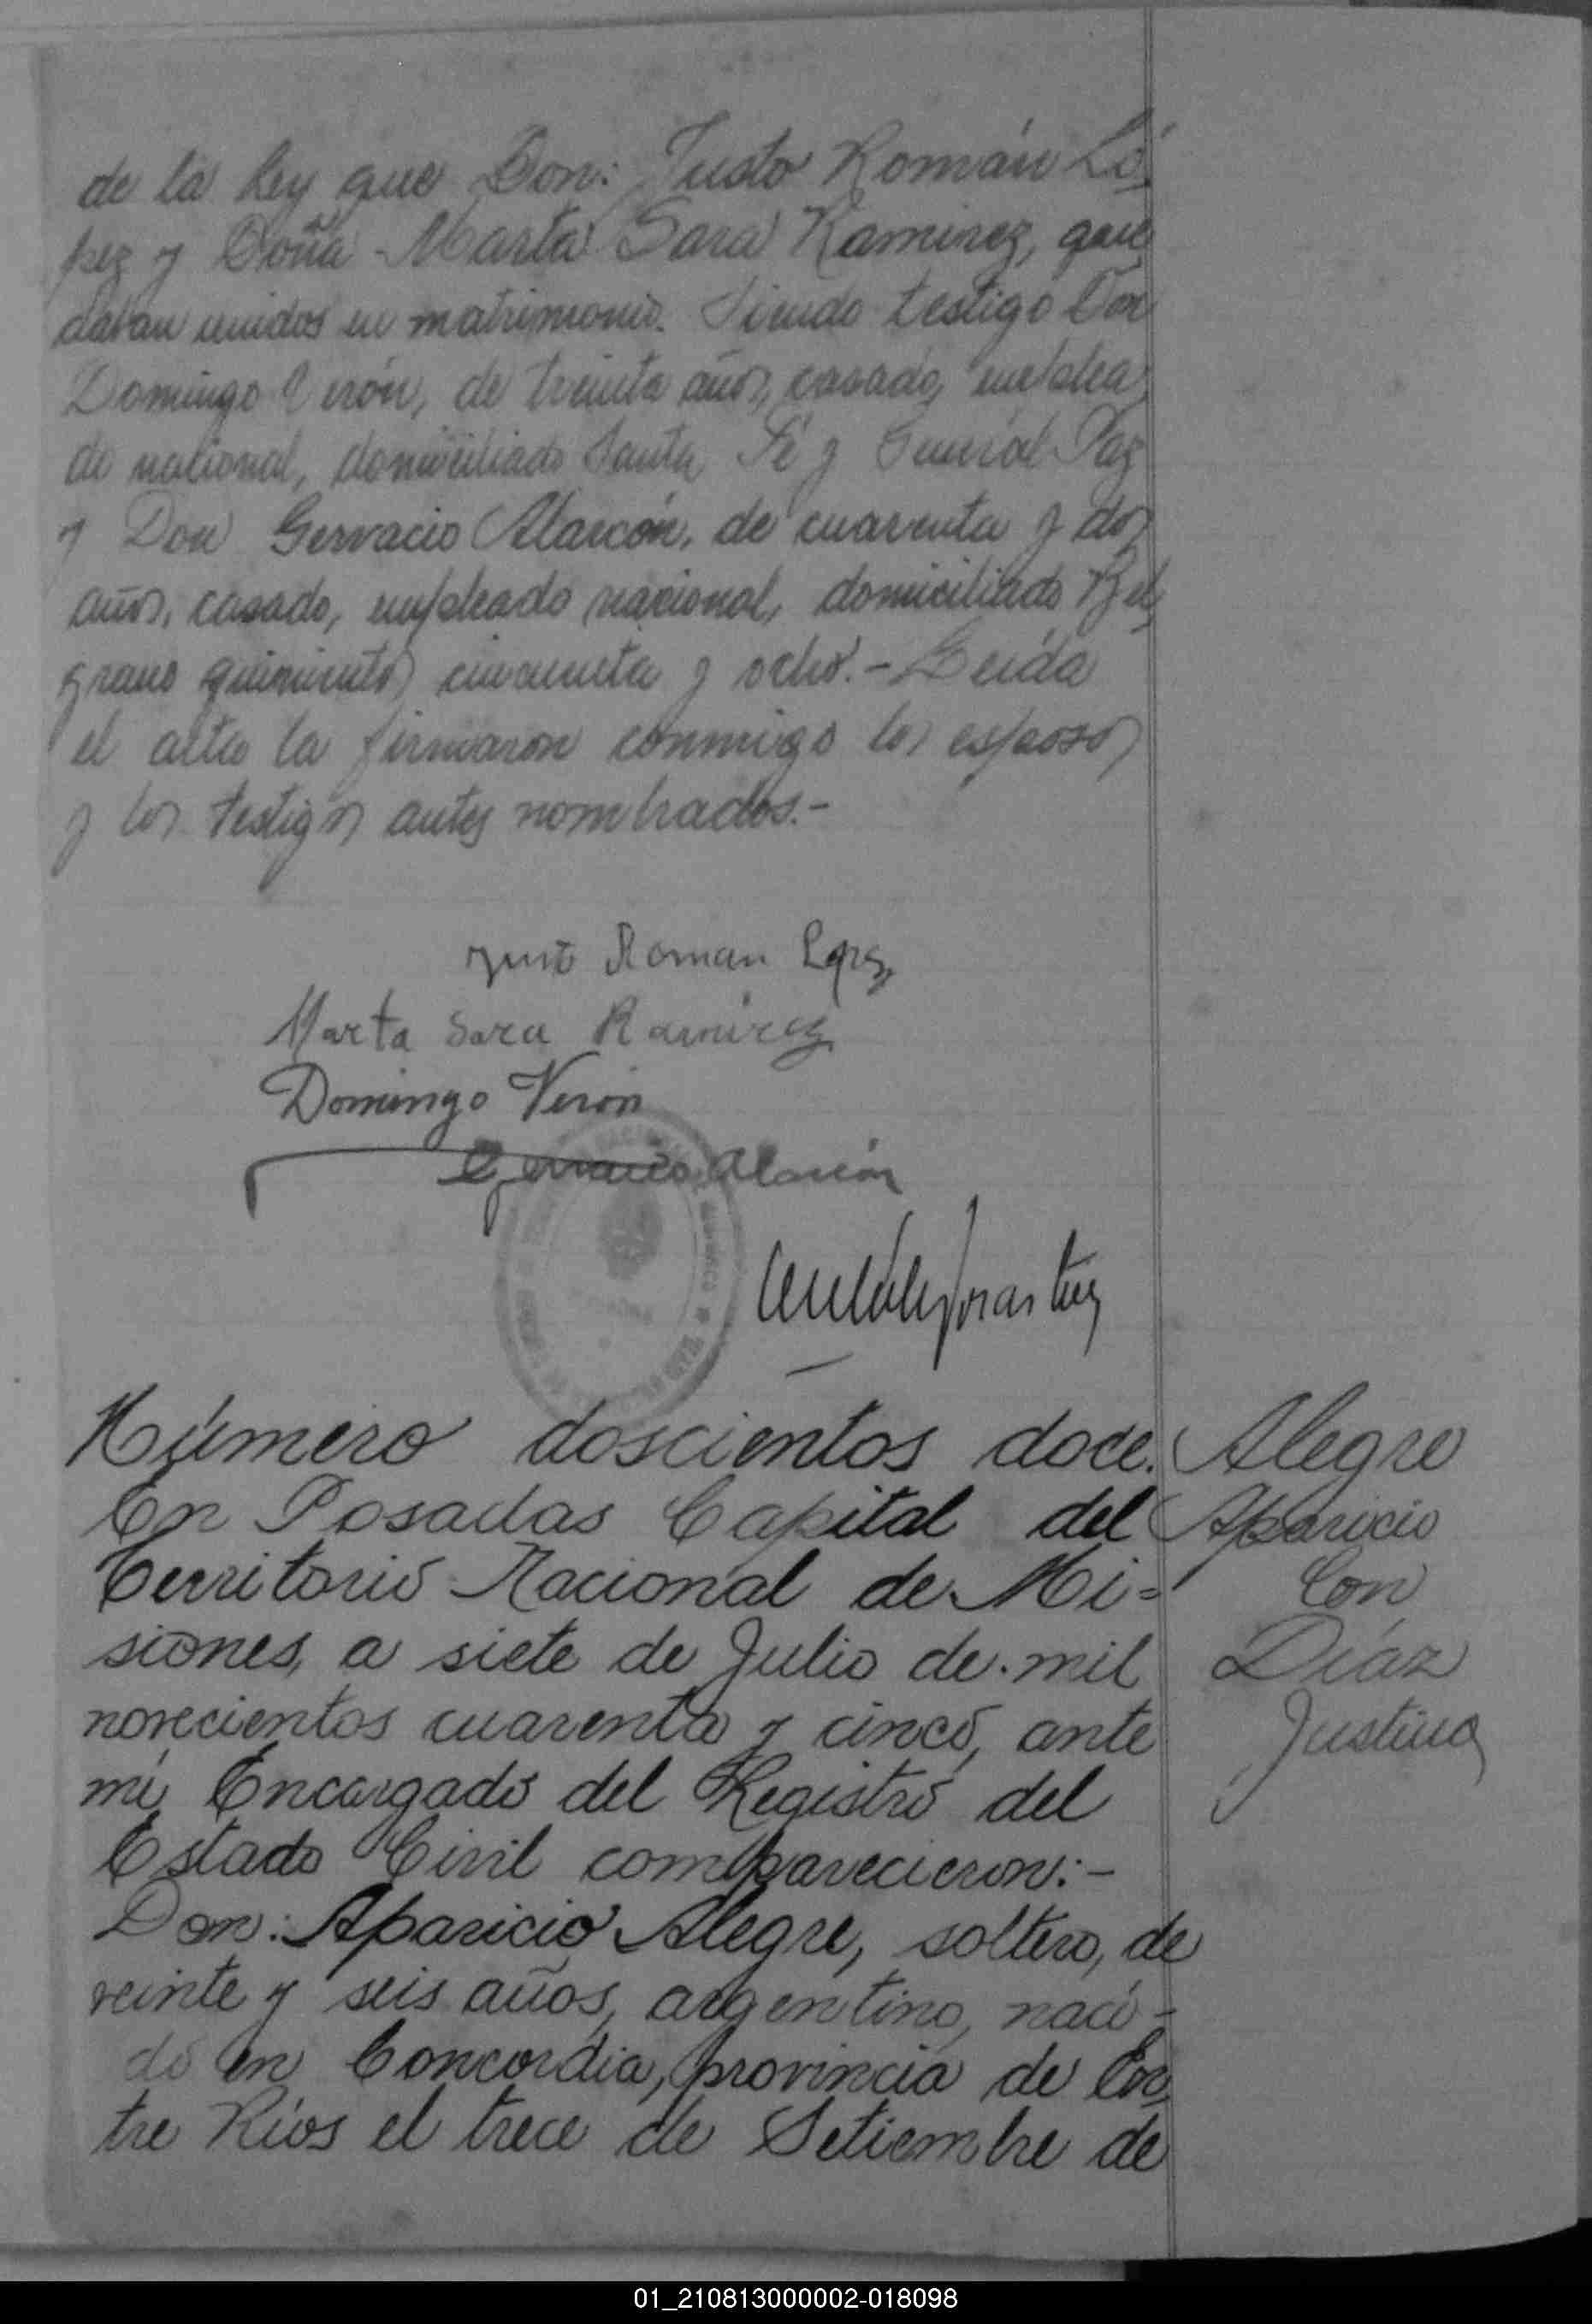 de la Ley que Don: Justo Román Ló-
pez y Doña Marta Sara Ramirez, que
daban unidos en matrimonio. Siendo testigo Don
Domingo Verón, de treinta años, casado, emplea
do nacional, domiciliado Santa Fé y General Paz
y Don Gervacio Alarcón, de cuarenta y dos
años, casado, empleado nacional, domiciliado Bel
grano quinientos cincuenta y ocho.- Leida
el acta la firmaron conmigo los esposos
y los testigos antes nombrados.-
Justo Roman Lopez
Marta Sara Ramirez
Domingo Verón
Gervacio Alarcón
Número doscientos doce.
En Posadas Capital del
Territorio Nacional de Mi=
siones, a siete de Julio de mil
novecientos cuarenta y cinco, ante
mi Encargado del Registro del
Estado Civil comparecieron:-
Don: Aparicio Alegre, soltero, de
veinte y seis años, argentino, naci-
do en Concordia, provincia de En
tre Ríos el trece de Setiembre de
Alegre
Aparicio
Con
Díaz
Justina
01_210813000002-018098